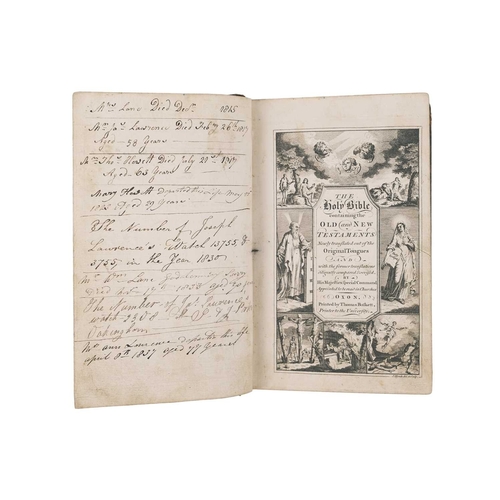 Mrs Lane Died Decr 1815
Mr Jas Lawrence Died Feby 26th 1817
Aged 58 Years
Mr Thos Howett Died July 22nd 1817
Aged 65 Years
Mary Howett departed this Life May
Aged 59 Years
The Number of Joseph
Lawrence's Watch 15755 &
3755 in the Year 1830
Lane
The Number of Jos Lawrence's
watch
Mrs Ann Lawrence departed this life
april 8th 1837 aged 77 Years
THE
Holy Bible
Containing the
OLD and NEW
TESTAMENTS
Newly translated out of the
Original Tongues
AND
with the former translations
diligently compared & revised,
BY
His Majesty's Special Command
Appointed to be read in Churches
OXON,
Printed by Thomas Baskett,
Printer to the University